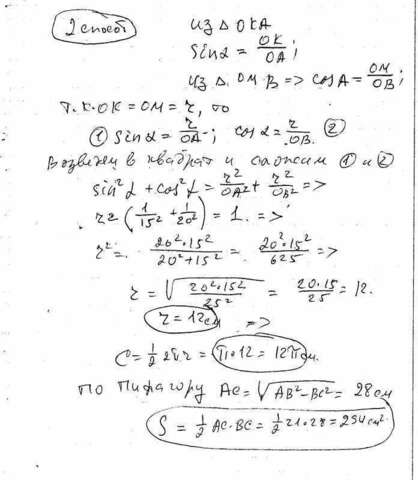 2 способ
из Δ OKA
sinα = OK/OA;
из Δ OM·B => cosA = OM/OB;
т.к. OK = OM = r, то
① sinα = r/OA; cosα = r/OB. ②
Возведем в квадрат и сложим ① и ②
sin²α + cos²α = r²/OA² + r²/OB² =>
r² (1/15² + 1/20²) = 1. =>
r² = 20²·15²/20²+15² = 20²·15²/625 =>
r = √20²·15²/25² = 20·15/25 = 12.
r = 12см =>
C = 1/2 2πr = π·12 = 12π см.
по Пифагору AC = √AB²-BC² = 28 см
S = 1/2 AC·BC = 1/2 21·28 = 294 см².